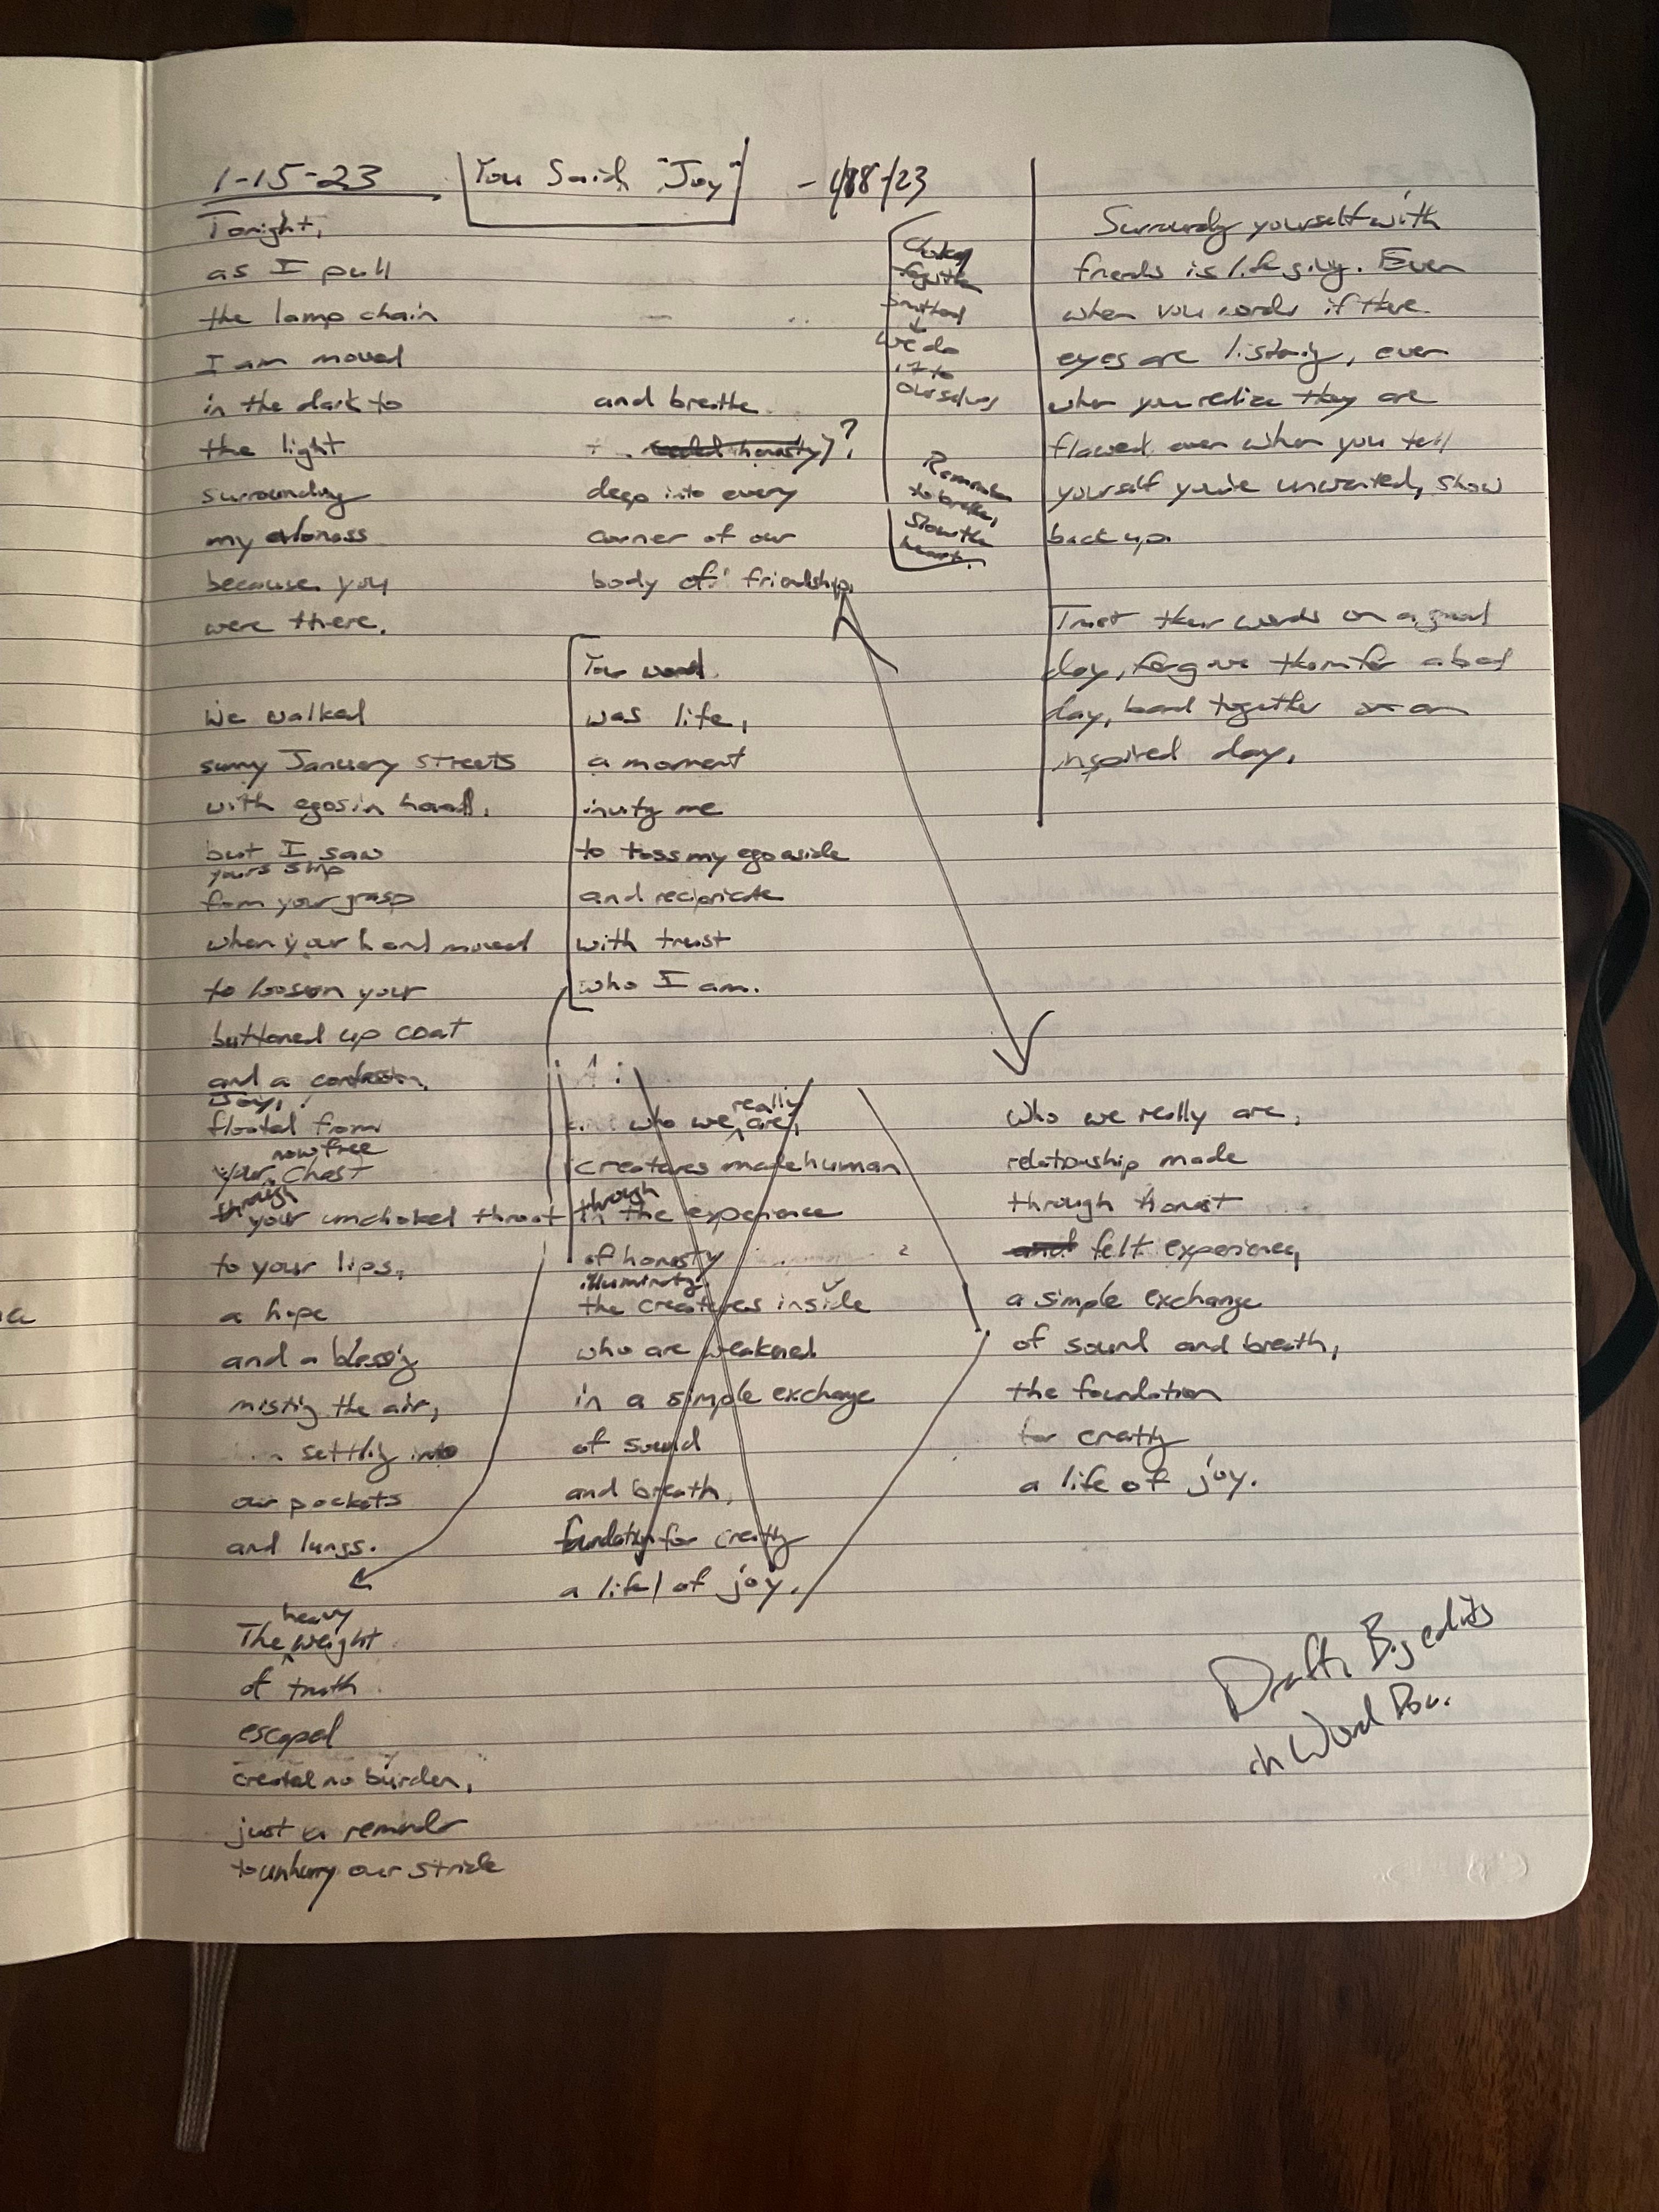 1-15-23
You Said "Joy"
Tonight,
as I pull
the lamp chain
I am moved
in the dark to
the light
surrounding
my aloness
because you
were there.
We walked
sunny January streets
with egos in hand,
but I saw
yours slip
from your grasp
when your hand moved
to loosen your
buttoned up coat
and a confession,
Joy,
floated from
now free
your chest
through
your unchoked throat
to your lips,
a hope
and a blessing
misting the air,
settling into
our pockets
and lungs.
heavy
The weight
of truth
escaped
created no burden,
just a reminder
to unhurry our stride
and breathe
honesty)?
deep into every
corner of our
body of friendship,
Your word
was life,
a moment
inviting me
to toss my ego aside
and reciprocate
with trust
who I am.
really
who we are,
creatures made human
through
in the experience
of honesty
illuminating
the creatures inside
who are weakened
in a simple exchange
of sound
and breath,
foundation for creating
a life of joy.
We do
it to
ourselves
Remember
to breathe,
Slow the
heart.
Surrounding yourself with
friends is life giving. Even
when you words if there
eyes are listening, even
when you realize they are
flawed, even when you tell
yourself you're unwanted, show
back up.
Trust their words on a good
day, forgive them for a bad
day, band together on an
inspired day.
Who we really are,
relationship made
through honest
and felt experience,
a simple exchange
of sound and breath,
the foundation
for creating
a life of joy.
Draft. Big edits
in Word Doc.